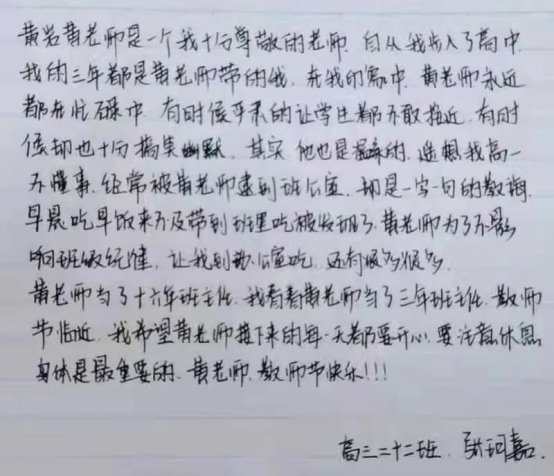 黄岩黄老师是一个我十分尊敬的老师,自从我步入了高中,
我的三年都是黄老师带的我,在我印象中,黄老师永远
都在忙碌中,有时候严肃的让学生都不敢接近,有时
候却也十分搞笑幽默,其实,他也是温柔的,遥想我高一
不懂事,经常被黄老师逮到办公室,却是一字一句的教诲,
早晨吃早饭来不及带到班里吃被发现了,黄老师为了不影
响班级纪律,让我到办公室吃,还有很多很多,
黄老师当了十六年班主任,我看着黄老师当了三年班主任,教师
节临近,我希望黄老师接下来的每一天都要开心,要注意休息
身体是最重要的,黄老师,教师节快乐!!!
高三二十二班,张珂嘉.